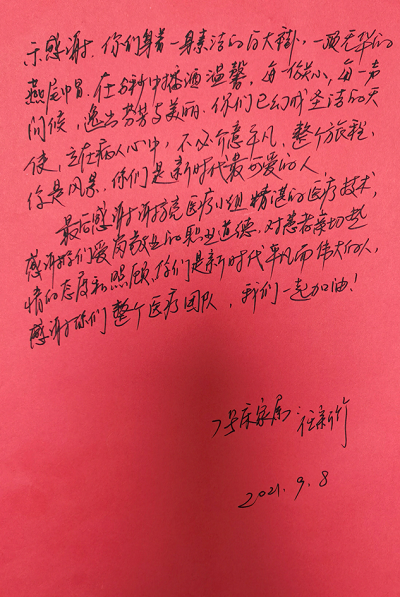 示感谢. 你们身着一身素洁的白大褂, 一顶无华的
燕尾中冒. 在多彩中播洒温馨, 每一份笑, 每一声
问候, 逸出芬芳与美丽. 你们已幻成圣洁的天
使, 立在病人心中, 不必介意平凡, 整个旅程,
你是风景. 你们是新时代最可爱的人.
最后感谢谢 医疗小组 精湛的医疗技术,
感谢你们爱岗敬业的职业道德, 对患者亲切热
情的态度和照顾, 你们是新时代平凡而伟大的人,
感谢你们整个医疗团队, 我们一起加油!
7号床家属: 任新
2021. 9. 8